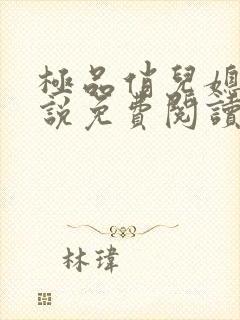 極品俏兒媳
說免費閱讀
林瑋